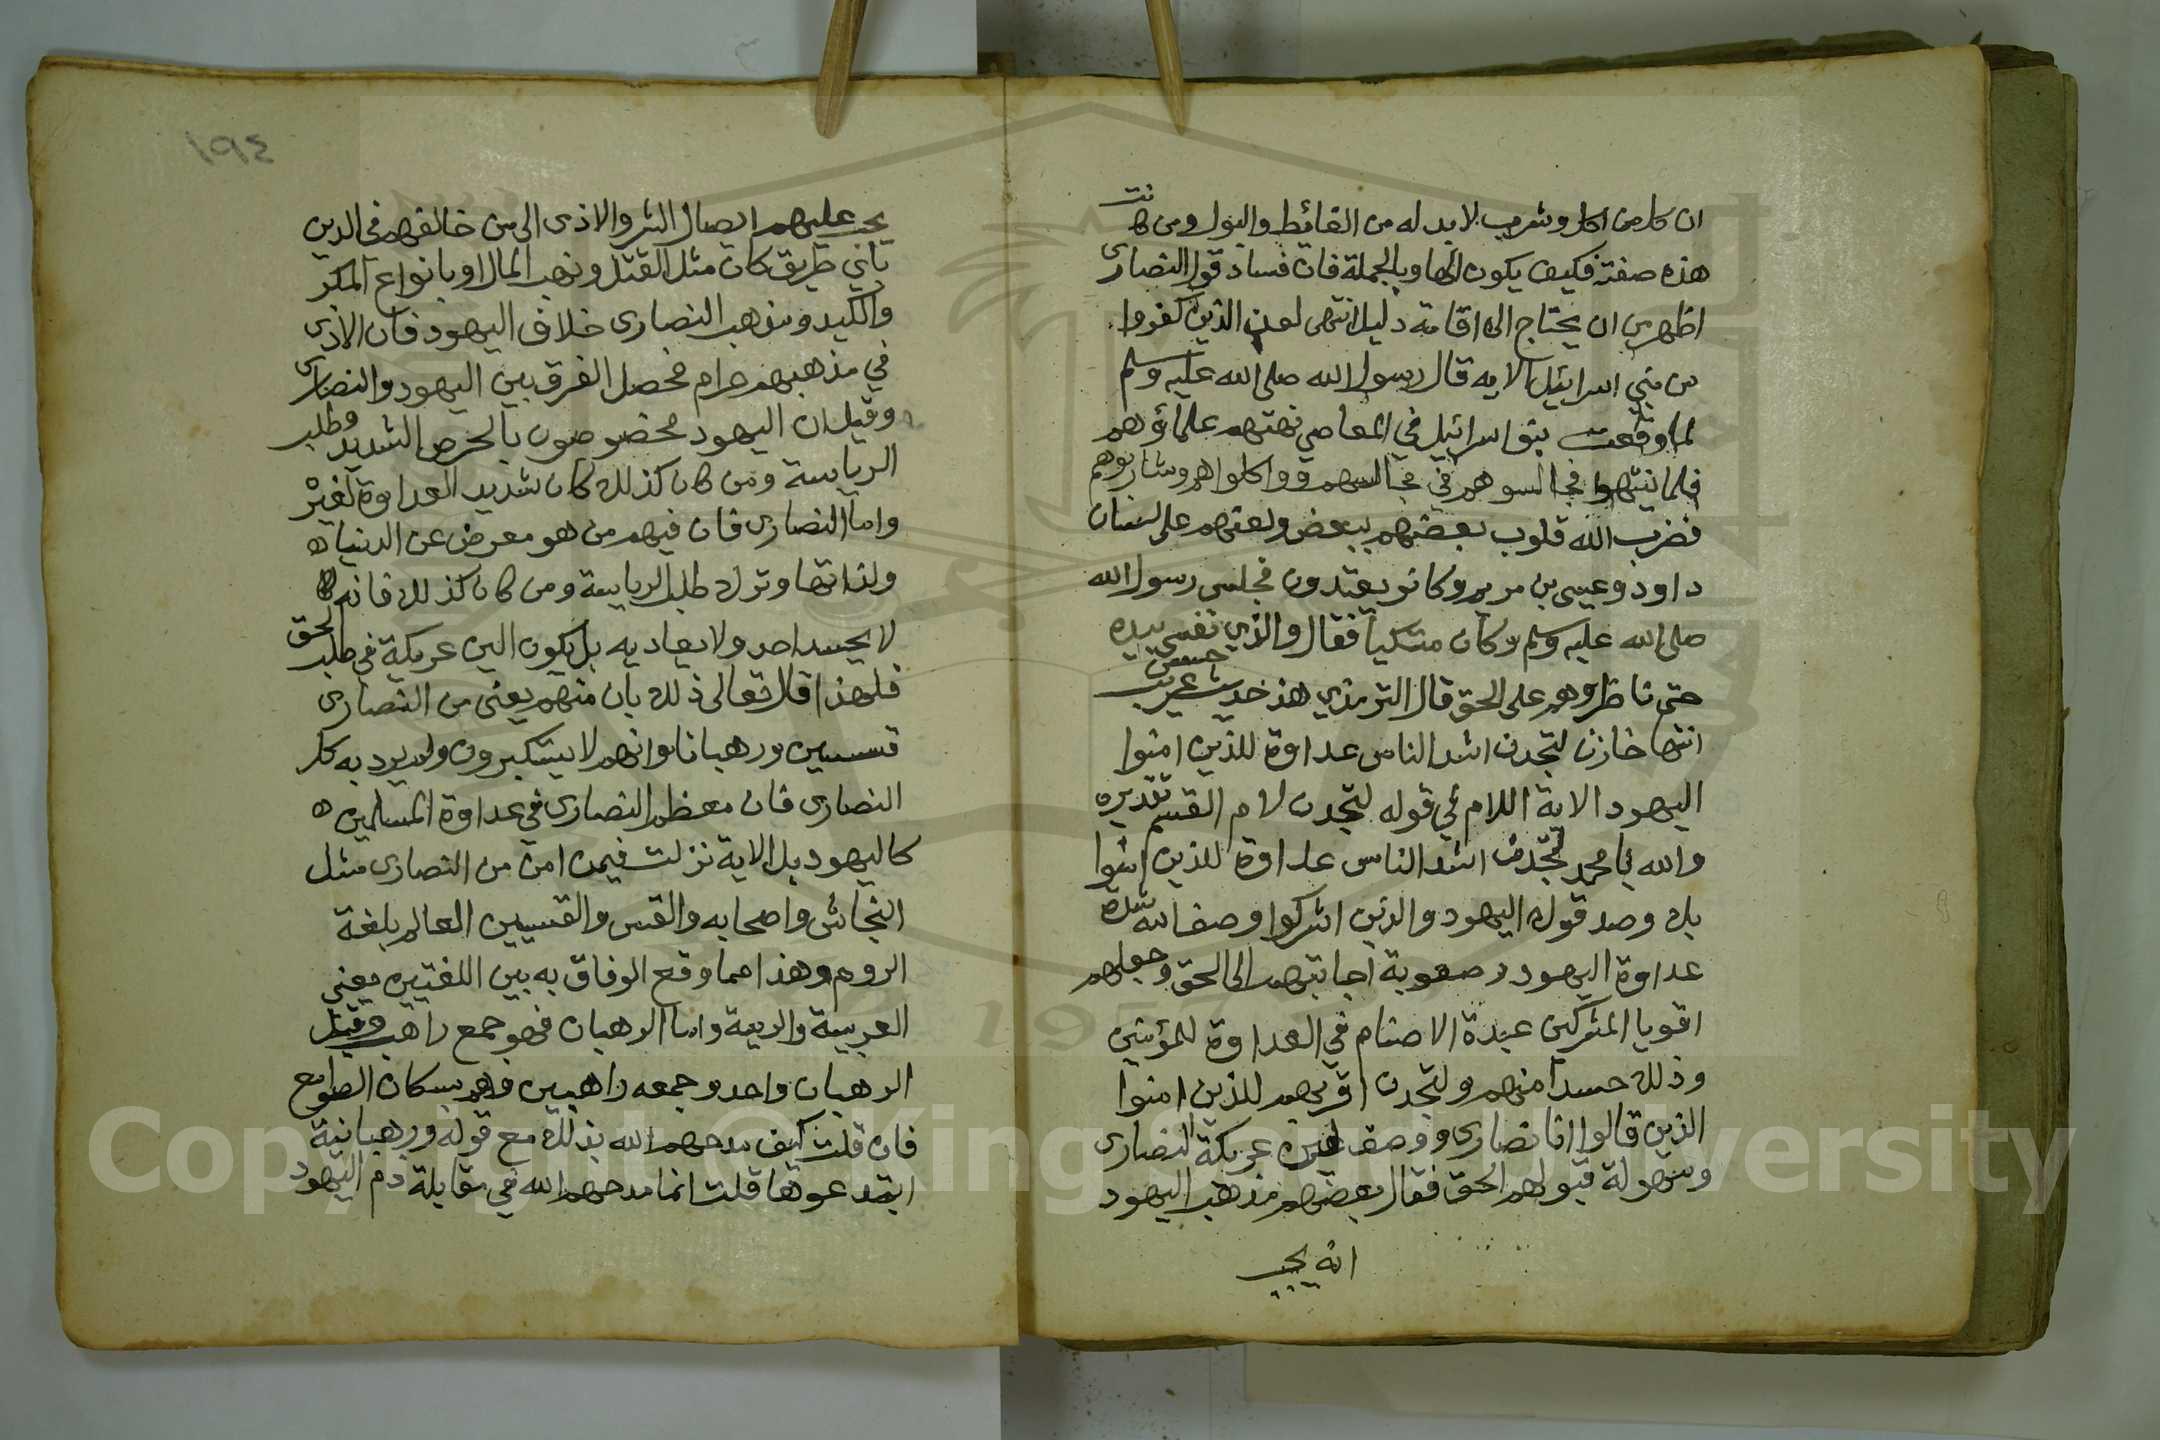 ان كل من اكل وشرب لا بد له من الغائط والبول ومن كانت
هذه صفته فكيف يكون الها وبالجملة فان فساد قول النصارى
اظهر من ان يحتاج الى اقامة دليل انتهى لعن الذين كفروا
من بني اسرائيل الايه قال رسول الله صلى الله عليه وسلم
لما وقعت بنو اسرائيل في المعاصي نهتهم علماؤهم
فلم ينتهوا فجالسوهم في مجالسهم وواكلواهم وشاربوهم
فضرب الله قلوب بعضهم ببعض ولعنهم على لسان
داود وعيسى بن مريم وكانو يعتدون فجلس رسول الله
صلى الله عليه وسلم وكان متكيا فقال والذي نفسي بيده
حتى تاطروهم على الحق قال الترمذي هذ حديث حسن غريب
انتها خازن لتجدن اشد الناس عداوة للذين امنوا
اليهود الاية اللام في قوله لتجدن لام القسم تقديره
والله يا محمد لتجدن اشد الناس عداوة للذين امنوا
بك وصدقوك اليهود والذين اشركوا وصف الله شدة
عداوة اليهود وصعوبة اجابتهم الى الحق وجعلهم
اقويا المشركين عبدة الاصنام في العداوة للمؤمنين
وذلك حسدا منهم ولتجدن اقربهم للذين امنوا
الذين قالوا انا نصارى ووصف لين عريكة النصارى
وسهولة قبولهم الحق فقال بعضهم مذهب اليهود
انه يجب
١٩٤
يجب عليهم ايصال الشر والاذى الى من خالفهم في الدين
باي طريق كان مثل القتل ونهب المال او بانواع المكر
والكيد ومذهب النصارى خلاف اليهود فان الاذى
في مذهبهم حرام فحصل الفرق بين اليهود والنصارى
وقيل ان اليهود مخصوصون بالحرص الشديد وطلب
الرياسة ومن كان كذلك كان شديد العداوة لغيره
واما النصارى فان فيهم من هو معرض عن الدنيا
ولذاتها وترك طلب الرياسة ومن كان كذلك فانه
لا يحسد احد ولا يعاديه بل يكون الين عريكة في طلب الحق
فلهذا قال تعالى ذلك بان منهم يعني من النصارى
قسسين ورهبانا وانهم لا يستكبرون ولم يرد به كل
النصارى فان معظم النصارى في عداوة المسلمين
كاليهود بل الاية نزلت فيمن امن من النصارى مثل
النجاشي واصحابه والقس والقسيسين العالم بلغة
الروم وهذا مما وقع الوفاق به بين اللغتين يعني
العربية والرمية واما الرهبان فهو جمع راهب وقيل
الرهبان واحد وجمعه راهبين وهم سكان الصوامع
فان قلت كيف مدحهم الله بذلك مع قوله ورهبانية
ابتدعوها قلت انما مدحهم الله في مقابلة ذم اليهود
Copyright © King Saud University